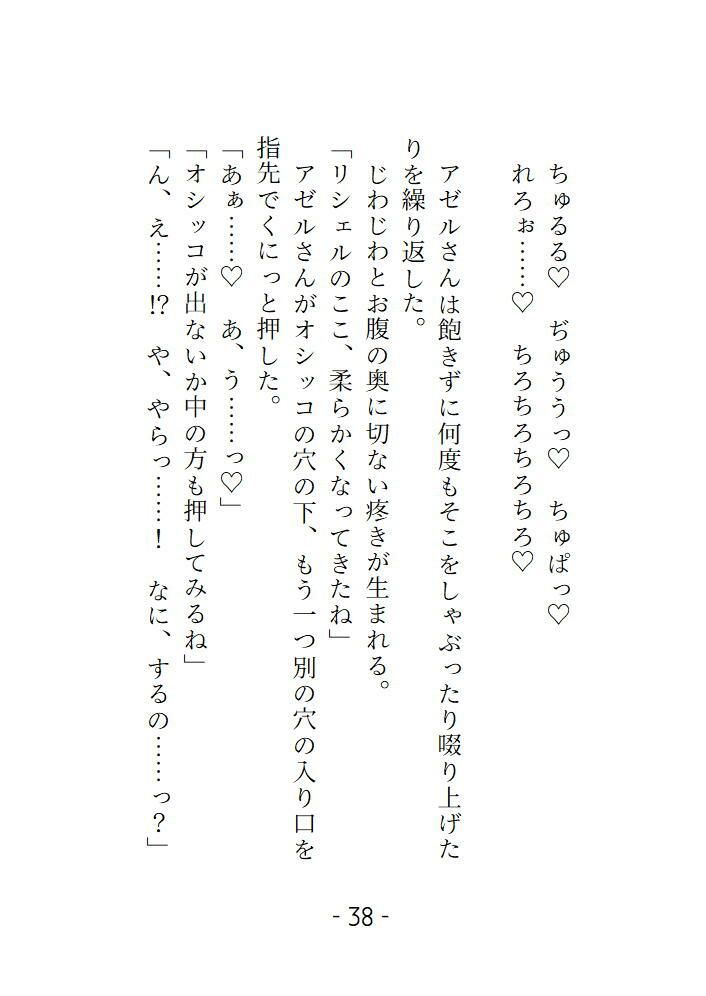 ちゅるる♡　ぢゅううっ♡　ちゅぱっ♡
れろぉ……♡　ちろちろちろちろ♡
アゼルさんは飽きずに何度もそこをしゃぶったり啜り上げた
りを繰り返した。
じわじわとお腹の奥に切ない疼きが生まれる。
「リシェルのここ、柔らかくなってきたね」
アゼルさんがオシッコの穴の下、もう一つ別の穴の入り口を
指先でくにっと押した。
「あぁ……♡　あ、う……っ♡」
「オシッコが出ないか中の方も押してみるね」
「ん、え……⁉　や、やらっ……！　なに、するの……っ？」
- 38 -